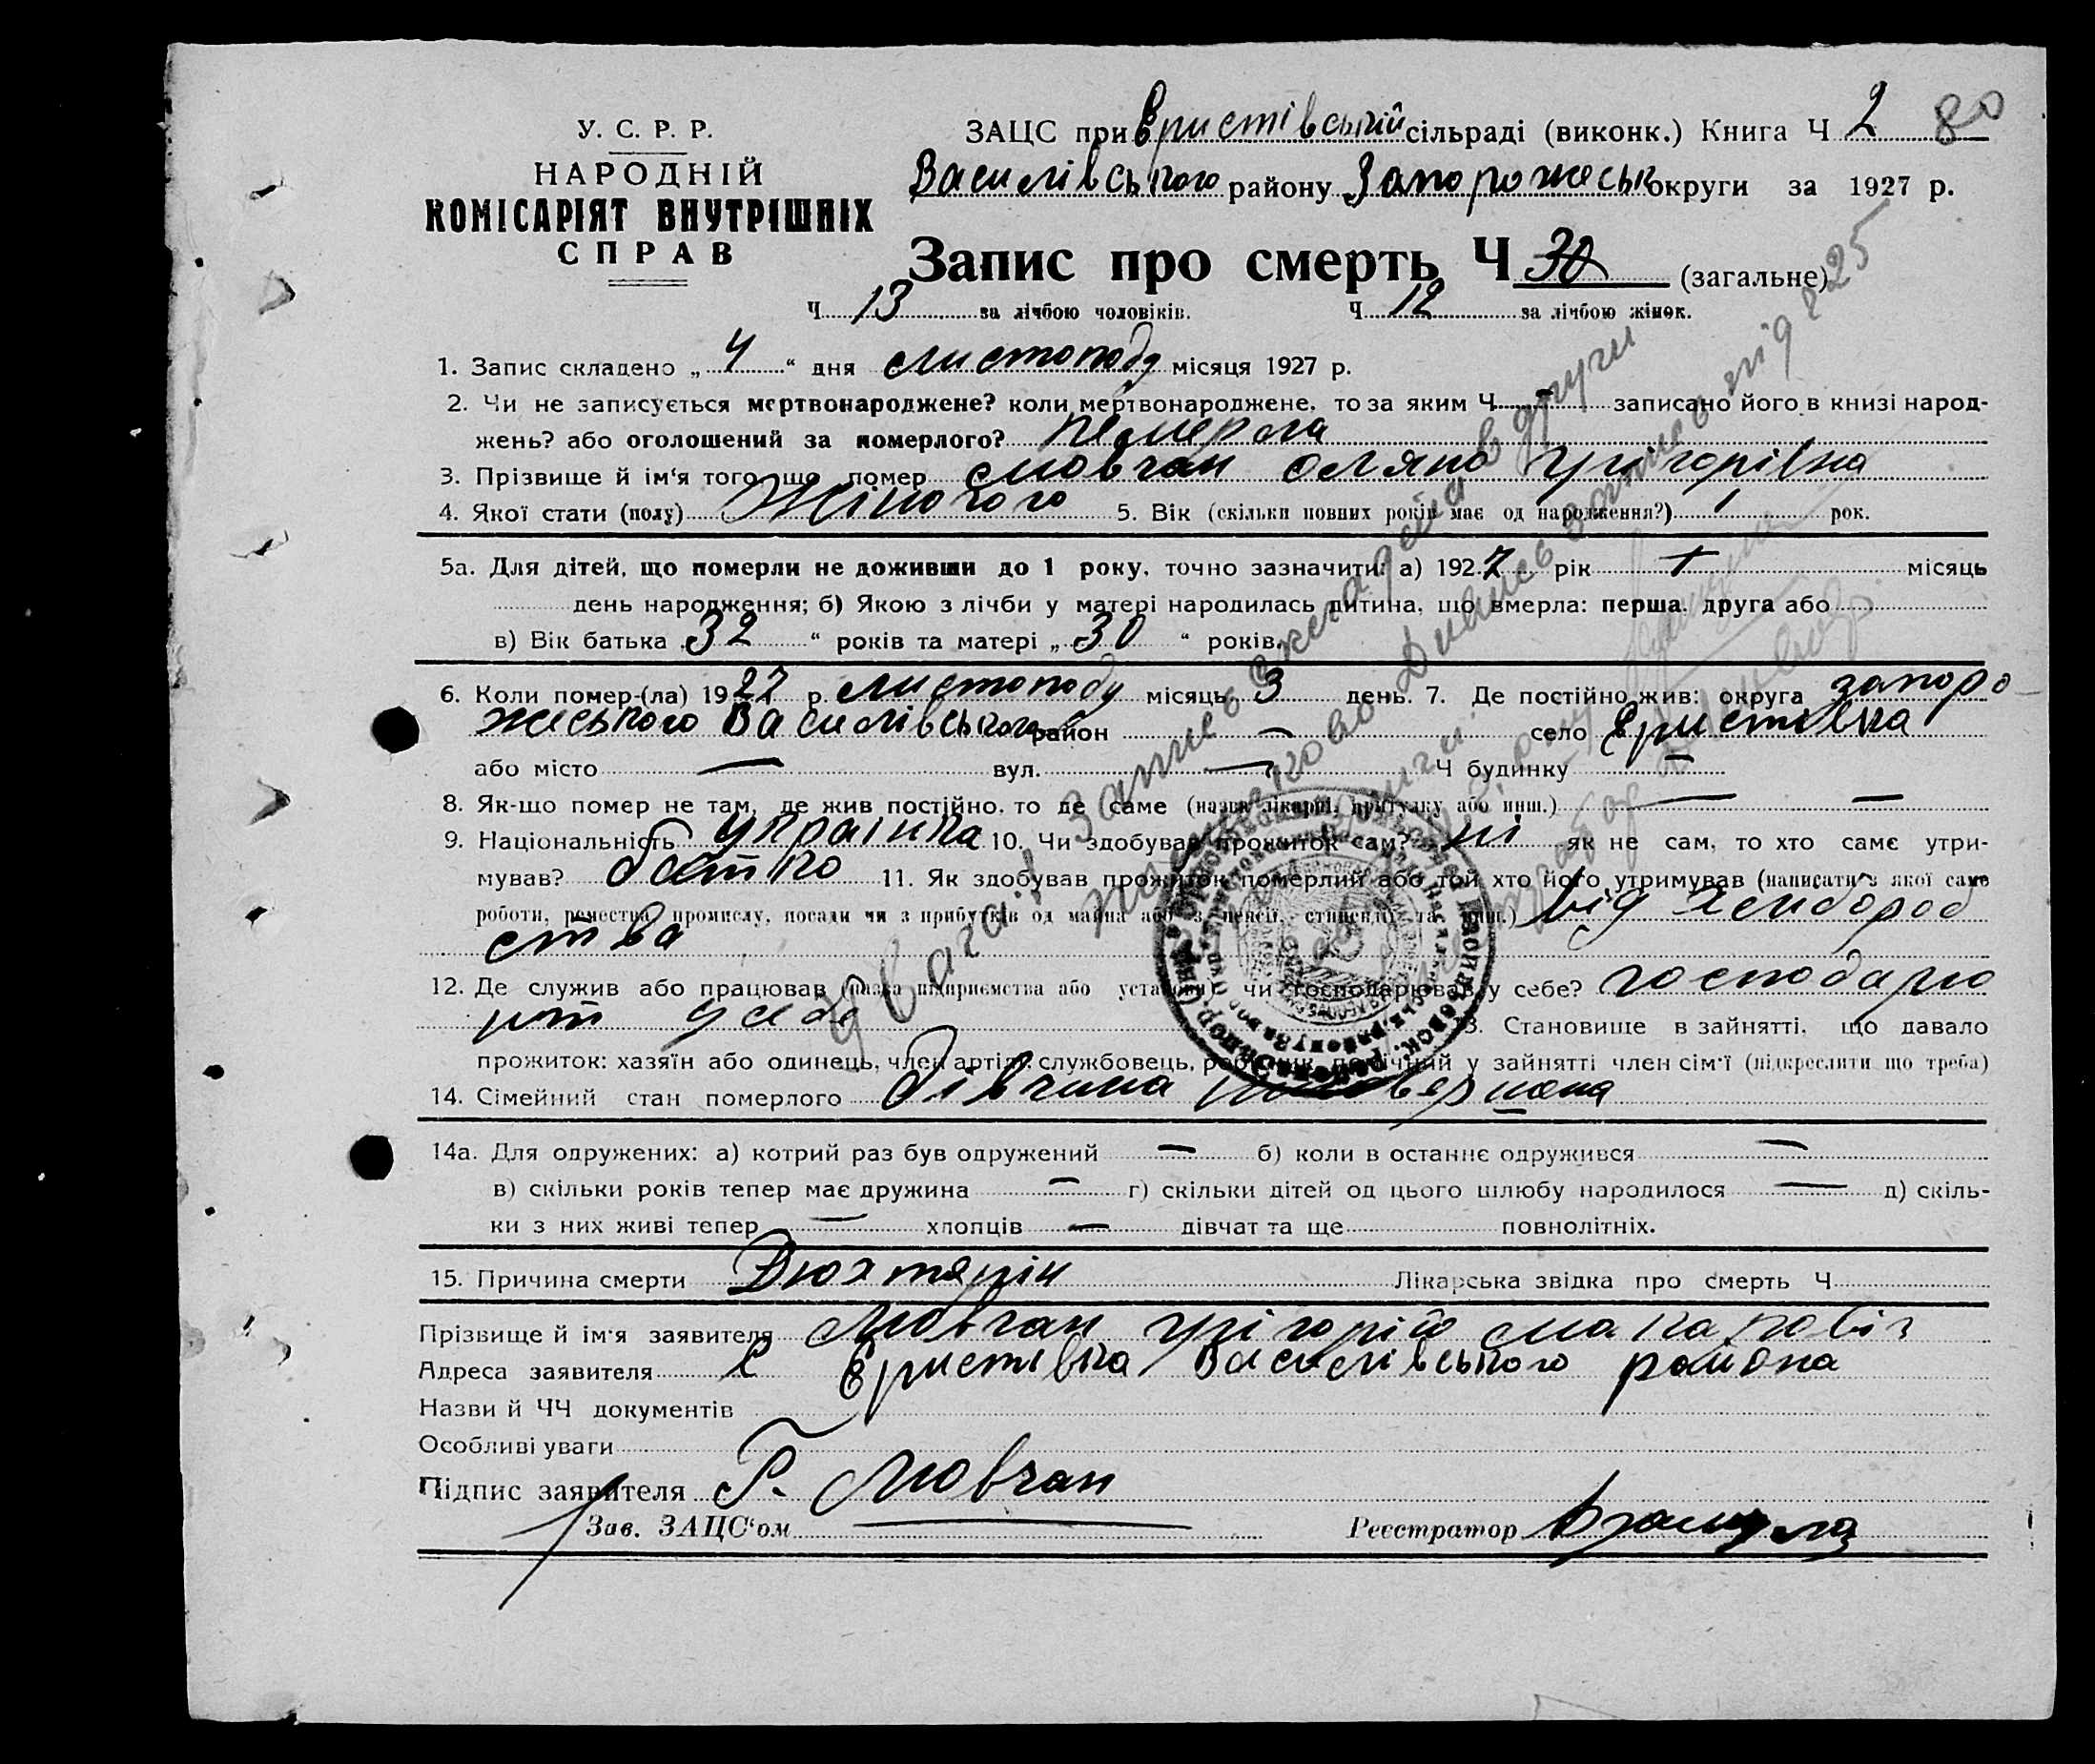 У. С. Р. Р.
НАРОДНІЙ
КОМІСАРІЯТ ВНУТРІШНІХ
СПРАВ
ЗАЦС при Єристівській сільраді (виконк.) Книга Ч 2 80
Василівського району Запорожеськ округи за 1927 р.
Запис про смерть Ч 30 (загальне)
Ч 13 за лічбою чоловіків. Ч 12 за лічбою жінок.
1. Запис складено „ 4 “ дня листопаду місяця 1927 р.
2. Чи не записується мертвонароджене? коли мертвонароджене, то за яким Ч – записано його в книзі народ-
жень? або оголошений за померлого? померла
3. Прізвище й ім‘я того, що помер Мовчан Оляна Грігорівна
4. Якої стати (полу) Жіночого 5. Вік (скільки повних років має од народження?) 1 рок.
5а. Для дітей, що померли не доживши до 1 року, точно зазначити: а) 1927 рік місяць
день народження; б) Якою з лічби у матері народилась дитина, що вмерла: перша, друга або
в) Вік батька „ 32 “ років та матері „ 30 “ років.
6. Коли помер-(ла) 1927 р. листопаду місяць 3 день. 7. Де постійно жив: округа запоро-
жеського Василівського район – село Єристівка
або місто – вул. – Ч будинку –
8. Як-що помер не там, де жив постійно, то де саме (назва лікарні, притулку або инш.) – –
9. Національність українка 10. Чи здобував прожиток сам? ні як не сам, то хто саме утри-
мував? батько 11. Як здобував прожиток померлий або той хто його утримував (написати з якої саме
роботи, ремества, промислу, посади чи з прибутків од майна або з пенсії, стипендії та инш.) від хлібороб
ства
12. Де служив або працював (назва підприємства або установи) чи господарював у себе? господарю
ют у себе 13. Становище в зайнятті, що давало
прожиток: хазяїн або одинець, член артілі, службовець, робітник, помічний у зайнятті член сім‘ї (підкреслити що треба)
14. Сімейний стан померлого дівчина
14а. Для одружених: а) котрий раз був одружений – б) коли в останнє одружився –
в) скільки років тепер має дружина – г) скільки дітей од цього шлюбу народилося – д) скіль-
ки з них живі тепер – хлопців – дівчат та ще повнолітніх.
15. Причина смерти Дюхтярін Лікарська звідка про смерть Ч
Прізвище й ім‘я заявителя Мовчан Грігорій Макарович
Адреса заявителя С Єристівка Василівського района
Назви й ЧЧ документів
Особливі уваги
Підпис заявителя Г. Мовчан
Зав. ЗАЦС‘ом Реєстратор
Увага! Запис